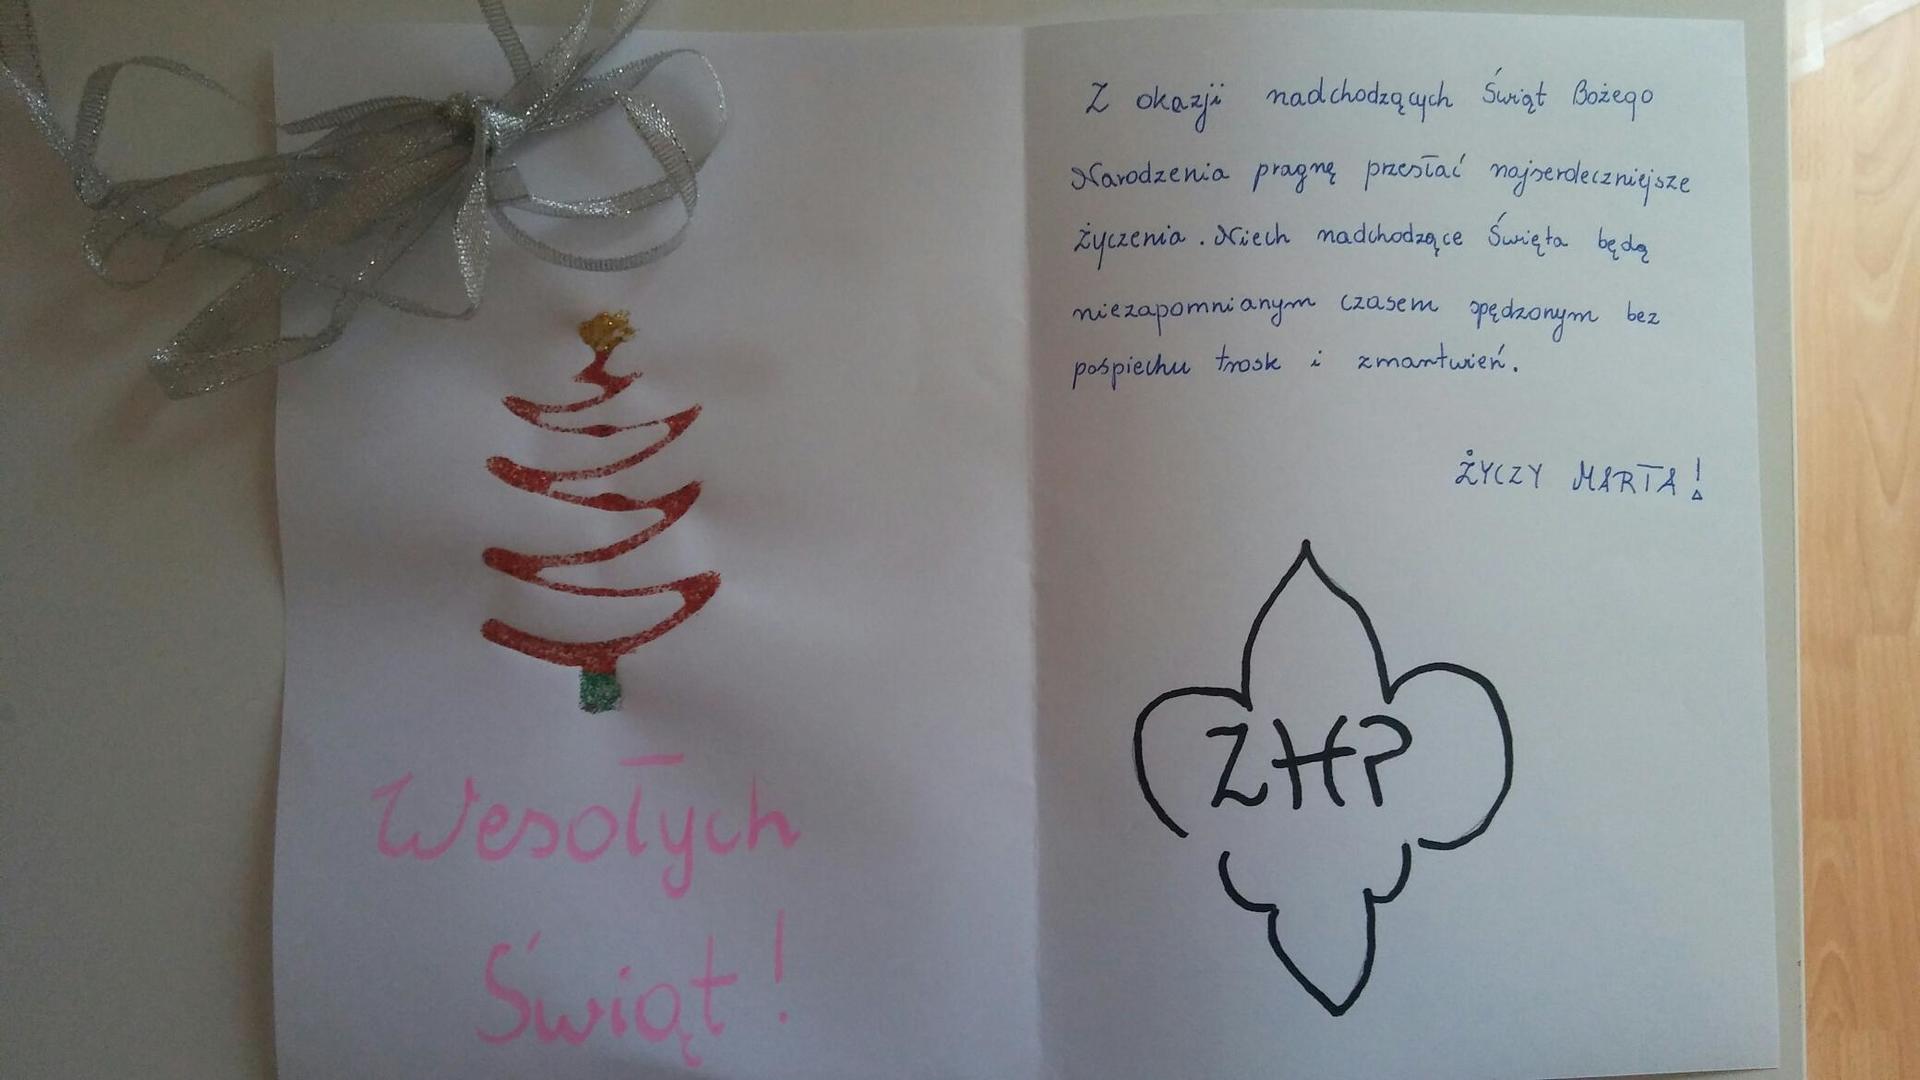 Wesołych
Świąt!
Z okazji nadchodzących Świąt Bożego
Narodzenia pragnę przesłać najserdeczniejsze
życzenia. Niech nadchodzące Święta będą
niezapomnianym czasem spędzonym bez
pośpiechu trosk i zmartwień.
ŻYCZY MARTA!
ZHP